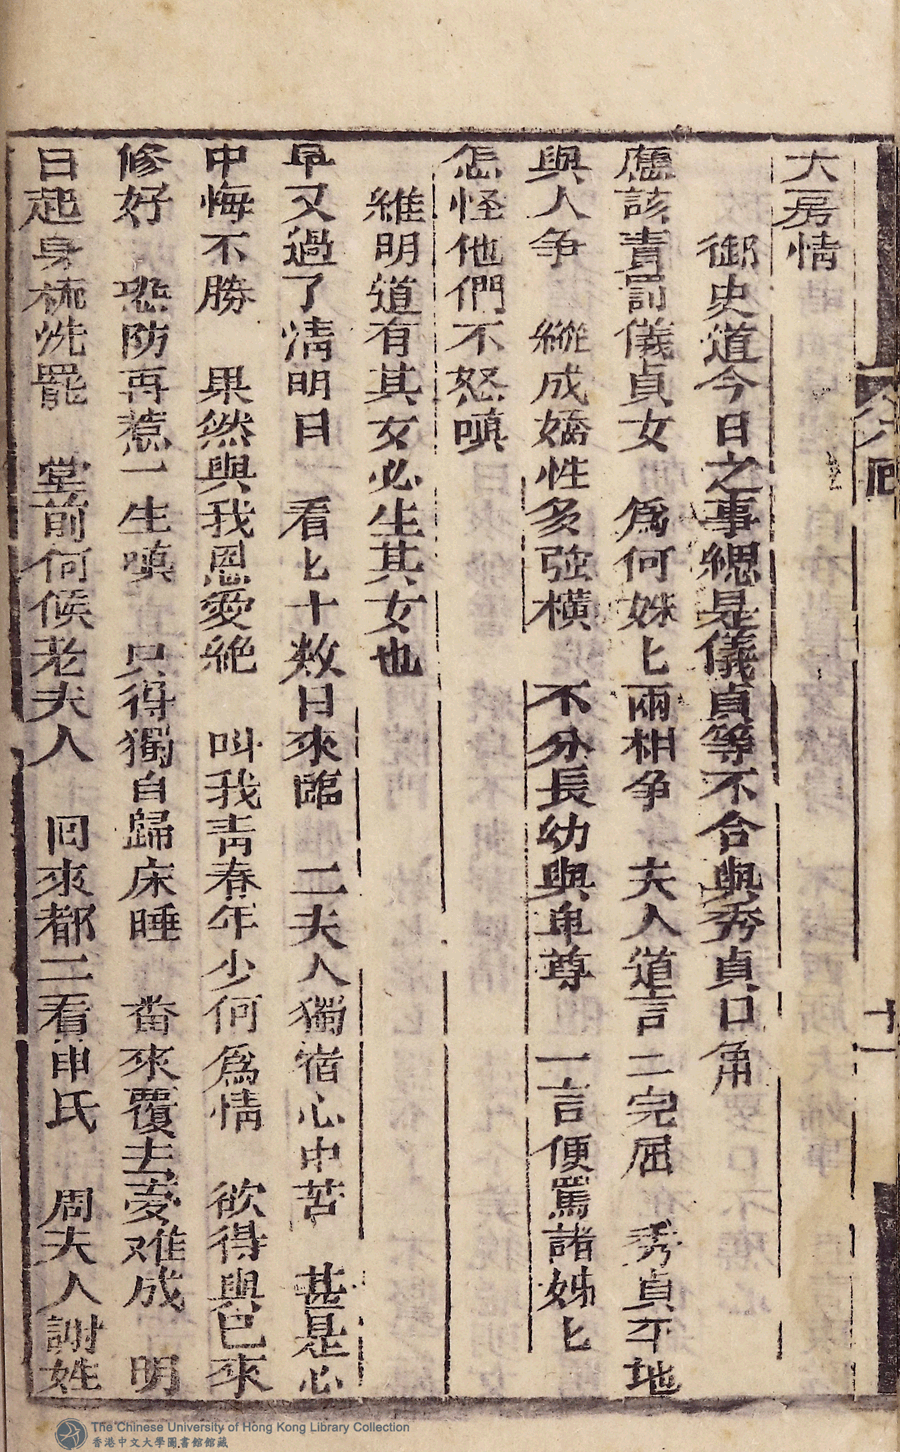 大房情
御史道今日之事緫是儀貞等不合與秀貞口角
應該責罰儀貞女 為何姝〻兩相爭 夫人道言二完屈 秀貞平地
與人爭 縱成嬌性多強橫 不分長幼與卑尊 一言便罵諸姊〻
怎怪他們不怒嗔
維明道有其女必生其女也
早又過了淸明日 看〻十数日來臨 二夫人獨宿心中苦 甚是心
中悔不勝 果然與我恩愛絶 叫我靑春年少何爲情 欲得與他來
修好 恐防再惹一生嗔 只得獨自歸床睡 畨來覆去夢难成 明
日起身梳洗罷 堂前伺候老夫人 囘來都二看申氏 周夫人謝姓
十一
The Chinese University of Hong Kong Library Collection
香港中文大學圖書館館藏